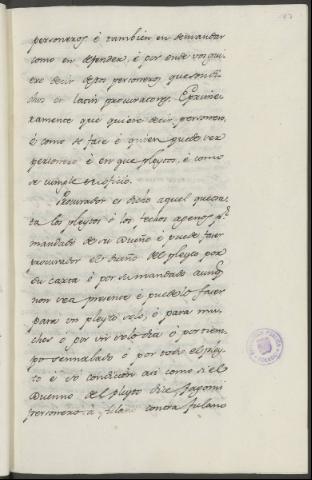 personeros è tambien en demandar
como en defender, è por ende vos qui
ero decir destos personeros que son di
chos en latin procuratores. E primè
ramente que quiere decir personero,
è como se face è quien puede ser
personero è en que pleytos, è como
se cumple su oficio.
Procurador es dicho aquel que tra
ta los pleytos ò los fechos agenos pr.
mandado de su Dueño è puede facer
procurador el dueño del pleyto por
su carta ò por su mandado aunq.
non sea presente è puedelo facer
para un pleyto solo, è para mu
chos ò por un solo dia ò por tiem
po sennalado ò por todo el pley
to è só condicion asi como si el
Duenno del pleyto dice fagomi
personero à fulano contra fulano